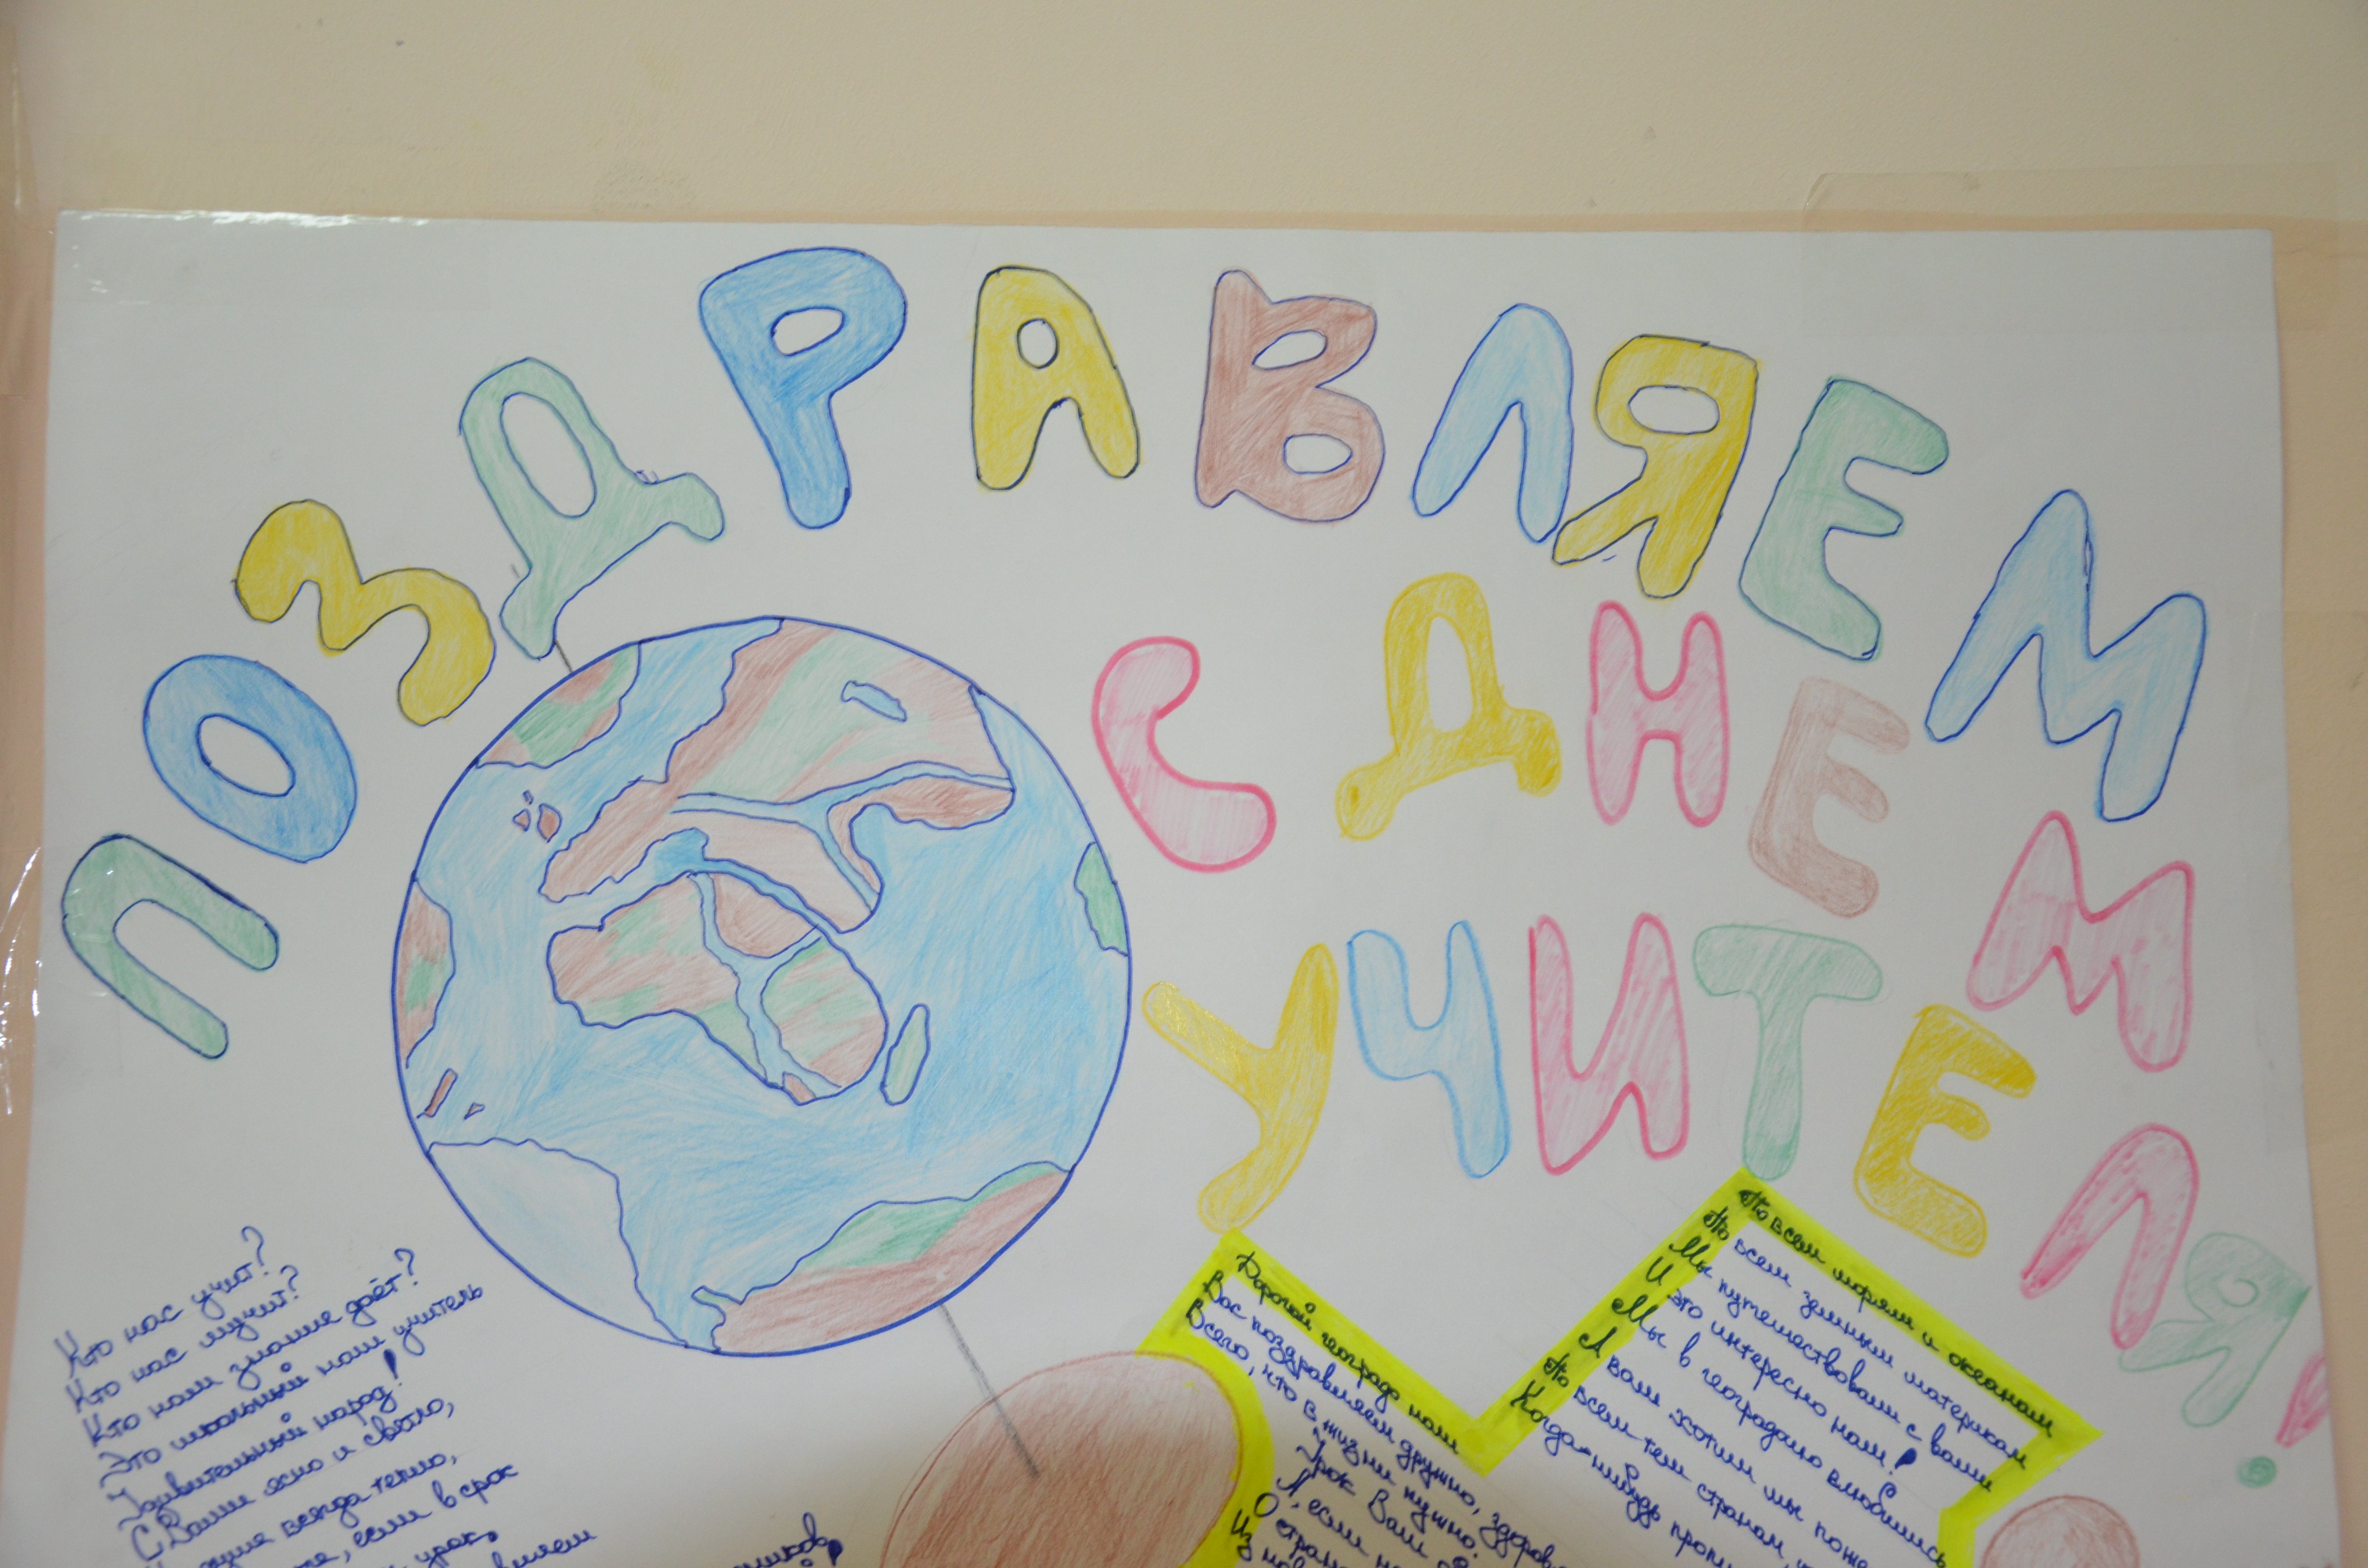 ПОЗДРАВЛЯЕМ
С ДНЕМ
УЧИТЕЛЯ!
Кто нас учит?
Кто нас мучит?
Кто нам знание даёт?
Это школьный наш учитель
Удивительный народ!
С Вами ясно и светло,
всегда тепло,
если в срок
урок
Дорогой географ наш
Вас поздравляем дружно,
Всего, что в жизни нужно.
Урок Ваш
А, если
О
Из
По всем морям и океанам
По всем земным материкам
Мы путешествовали с вами
И это интересно нам!
Мы в географию влюбились
А вам хотим мы
По всем тем странам,
Когда-нибудь